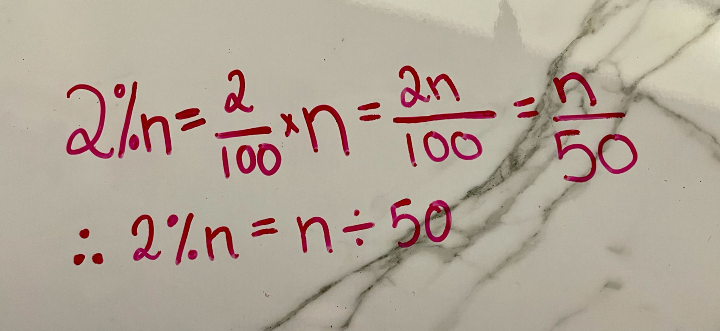 2%n = 2/100 × n = 2n/100 = n/50
∴ 2%n = n ÷ 50